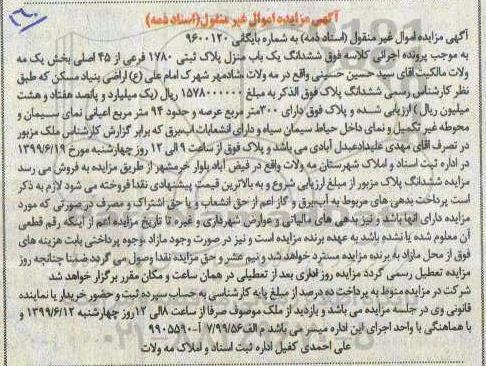 آگهی مزایده اموال غیر منقول(اسناد ذمه)
آگهی مزایده اموال غیر منقول (اسناد ذمه) به شماره بایگانی ۹۶۰۰۱۲۰
به موجب پرونده اجرائی کلاسه فوق ششدانگ یک باب منزل پلاک ثبتی ۱۷۸۰ فرعی از ۴۵ اصلی بخش یک مه
ولات مالکیت آقای سید حسین حسینی واقع در مه ولات شادمهر شهرک امام علی (ع) اراضی بنیاد مسکن که طبق
نظر کارشناس رسمی ششدانگ پلاک فوق الذکر به مبلغ ۱۵۷۸۰۰۰۰۰۰ ریال (یک میلیارد و پانصد هفتاد و هشت
میلیون ریال ) ارزیابی شده و پلاک فوق دارای ۳۰۰متر مربع عرصه و حدود ۹۴ متر مربع اعیانی نمای سیمان و
محوطه غیر تکمیل و نمای داخل حیاط سیمان سیاه و دارای انشعابات آب،برق که برابر گزارش کارشناس ملک مزبور
در تصرف آقای مهدی علیدادعبدل آبادی می باشد و پلاک فوق از ساعت ۹ الی ۱۲ روز چهارشنبه مورخ ۱۳۹۹/۶/۱۹
در اداره ثبت اسناد و املاک شهرستان مه ولات واقع در فیض آباد بلوار خرمشهر از طریق مزایده به فروش می رسد
مزایده ششدانگ پلاک مزبور از مبلغ ارزیابی شروع و به بالاترین قیمت پیشنهادی نقدا فروخته می شود لازم به ذکر
است پرداخت بدهی های مربوط به آب،برق و گاز اعم از حق انشعاب و یا حق اشتراک و مصرف در صورتی که مورد
مزایده دارای آنها باشد و نیز بدهی های مالیاتی و عوارض شهرداری و غیره تا تاریخ مزایده اعم از اینکه رقم قطعی
آن معلوم شده یا نشده باشد به عهده برنده مزایده است و نیز در صورت وجود مازاد ،وجوه پرداختی بابت هزینه های
فوق از محل مازاد به برنده مزایده مسترد خواهد شد و نیم عشر و حق مزایده نقدا وصول می گردد ضمنا چنانچه روز
مزایده تعطیل رسمی گردد مزایده روز اداری بعد از تعطیلی در همان ساعت و مکان مقرر برگزار خواهد شد
شرکت در مزایده منوط به پرداخت ده درصد از مبلغ پایه کارشناسی به حساب سپرده ثبت و حضور خریدار یا نماینده
قانونی وی در جلسه مزایده می باشد و بازدید از ملک موصوف صرفا از ساعت ۸الی ۱۲روز چهارشنبه ۱۳۹۹/۶/۱۲ و
با هماهنگی با واحد اجرای این اداره میسر می باشد م الف ۷/۹۹/۵۶ آ-۹۹۰۵۵۹۰
علی احمدی کفیل اداره ثبت اسناد و املاک مه ولات